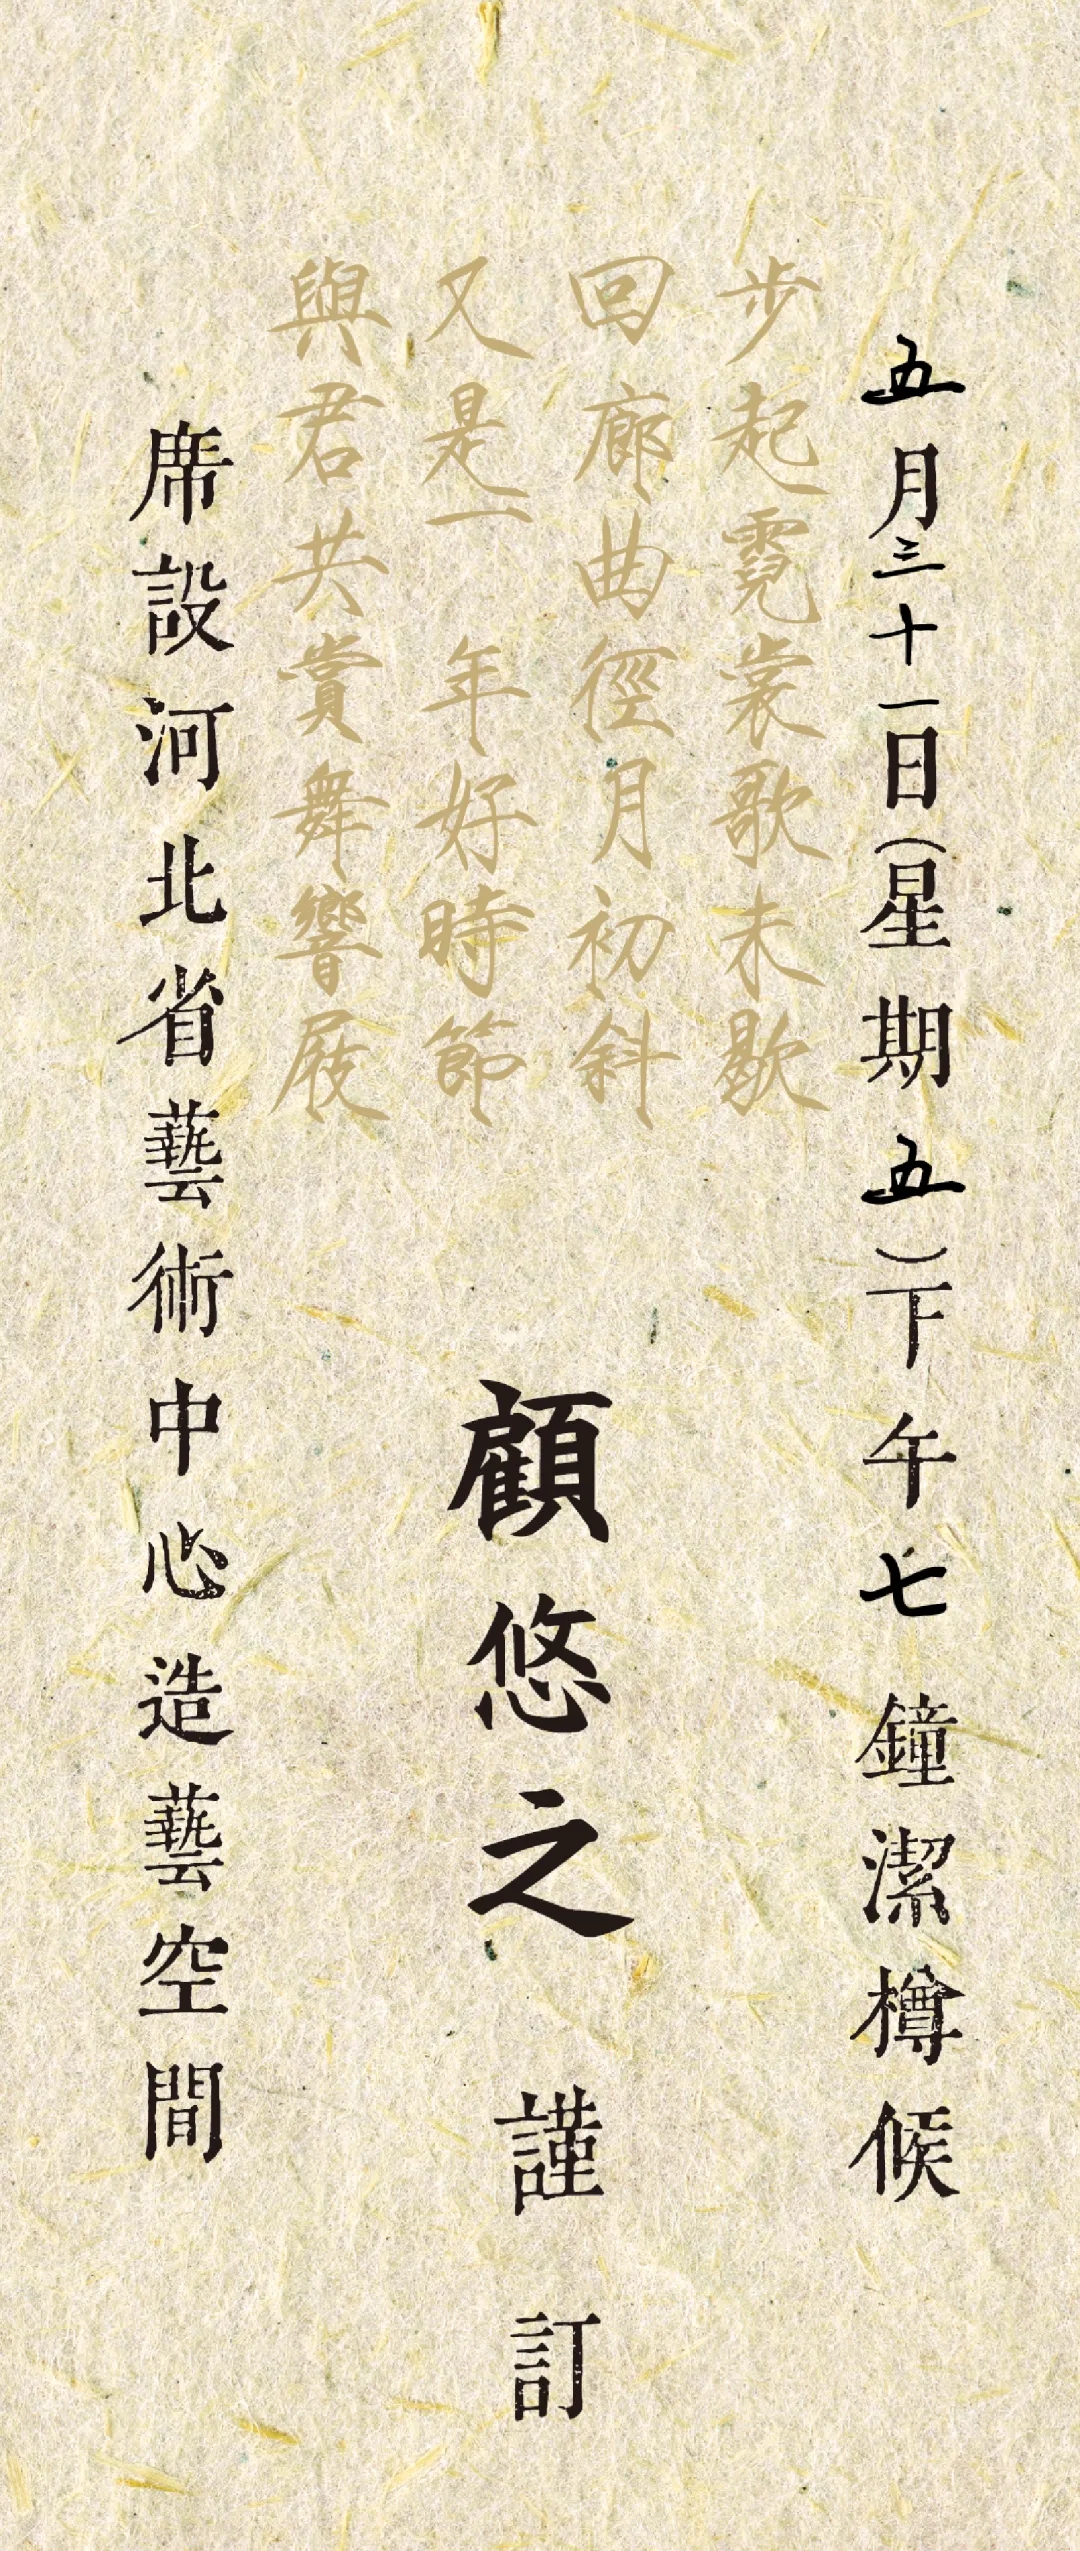 五月三十一日(星期五)下午七鐘潔樽候
步起霓裳歌未歇
回廊曲徑月初斜
又是一年好時節
與君共賞舞響屐
顧悠之 謹訂
席設河北省藝術中心造藝空間